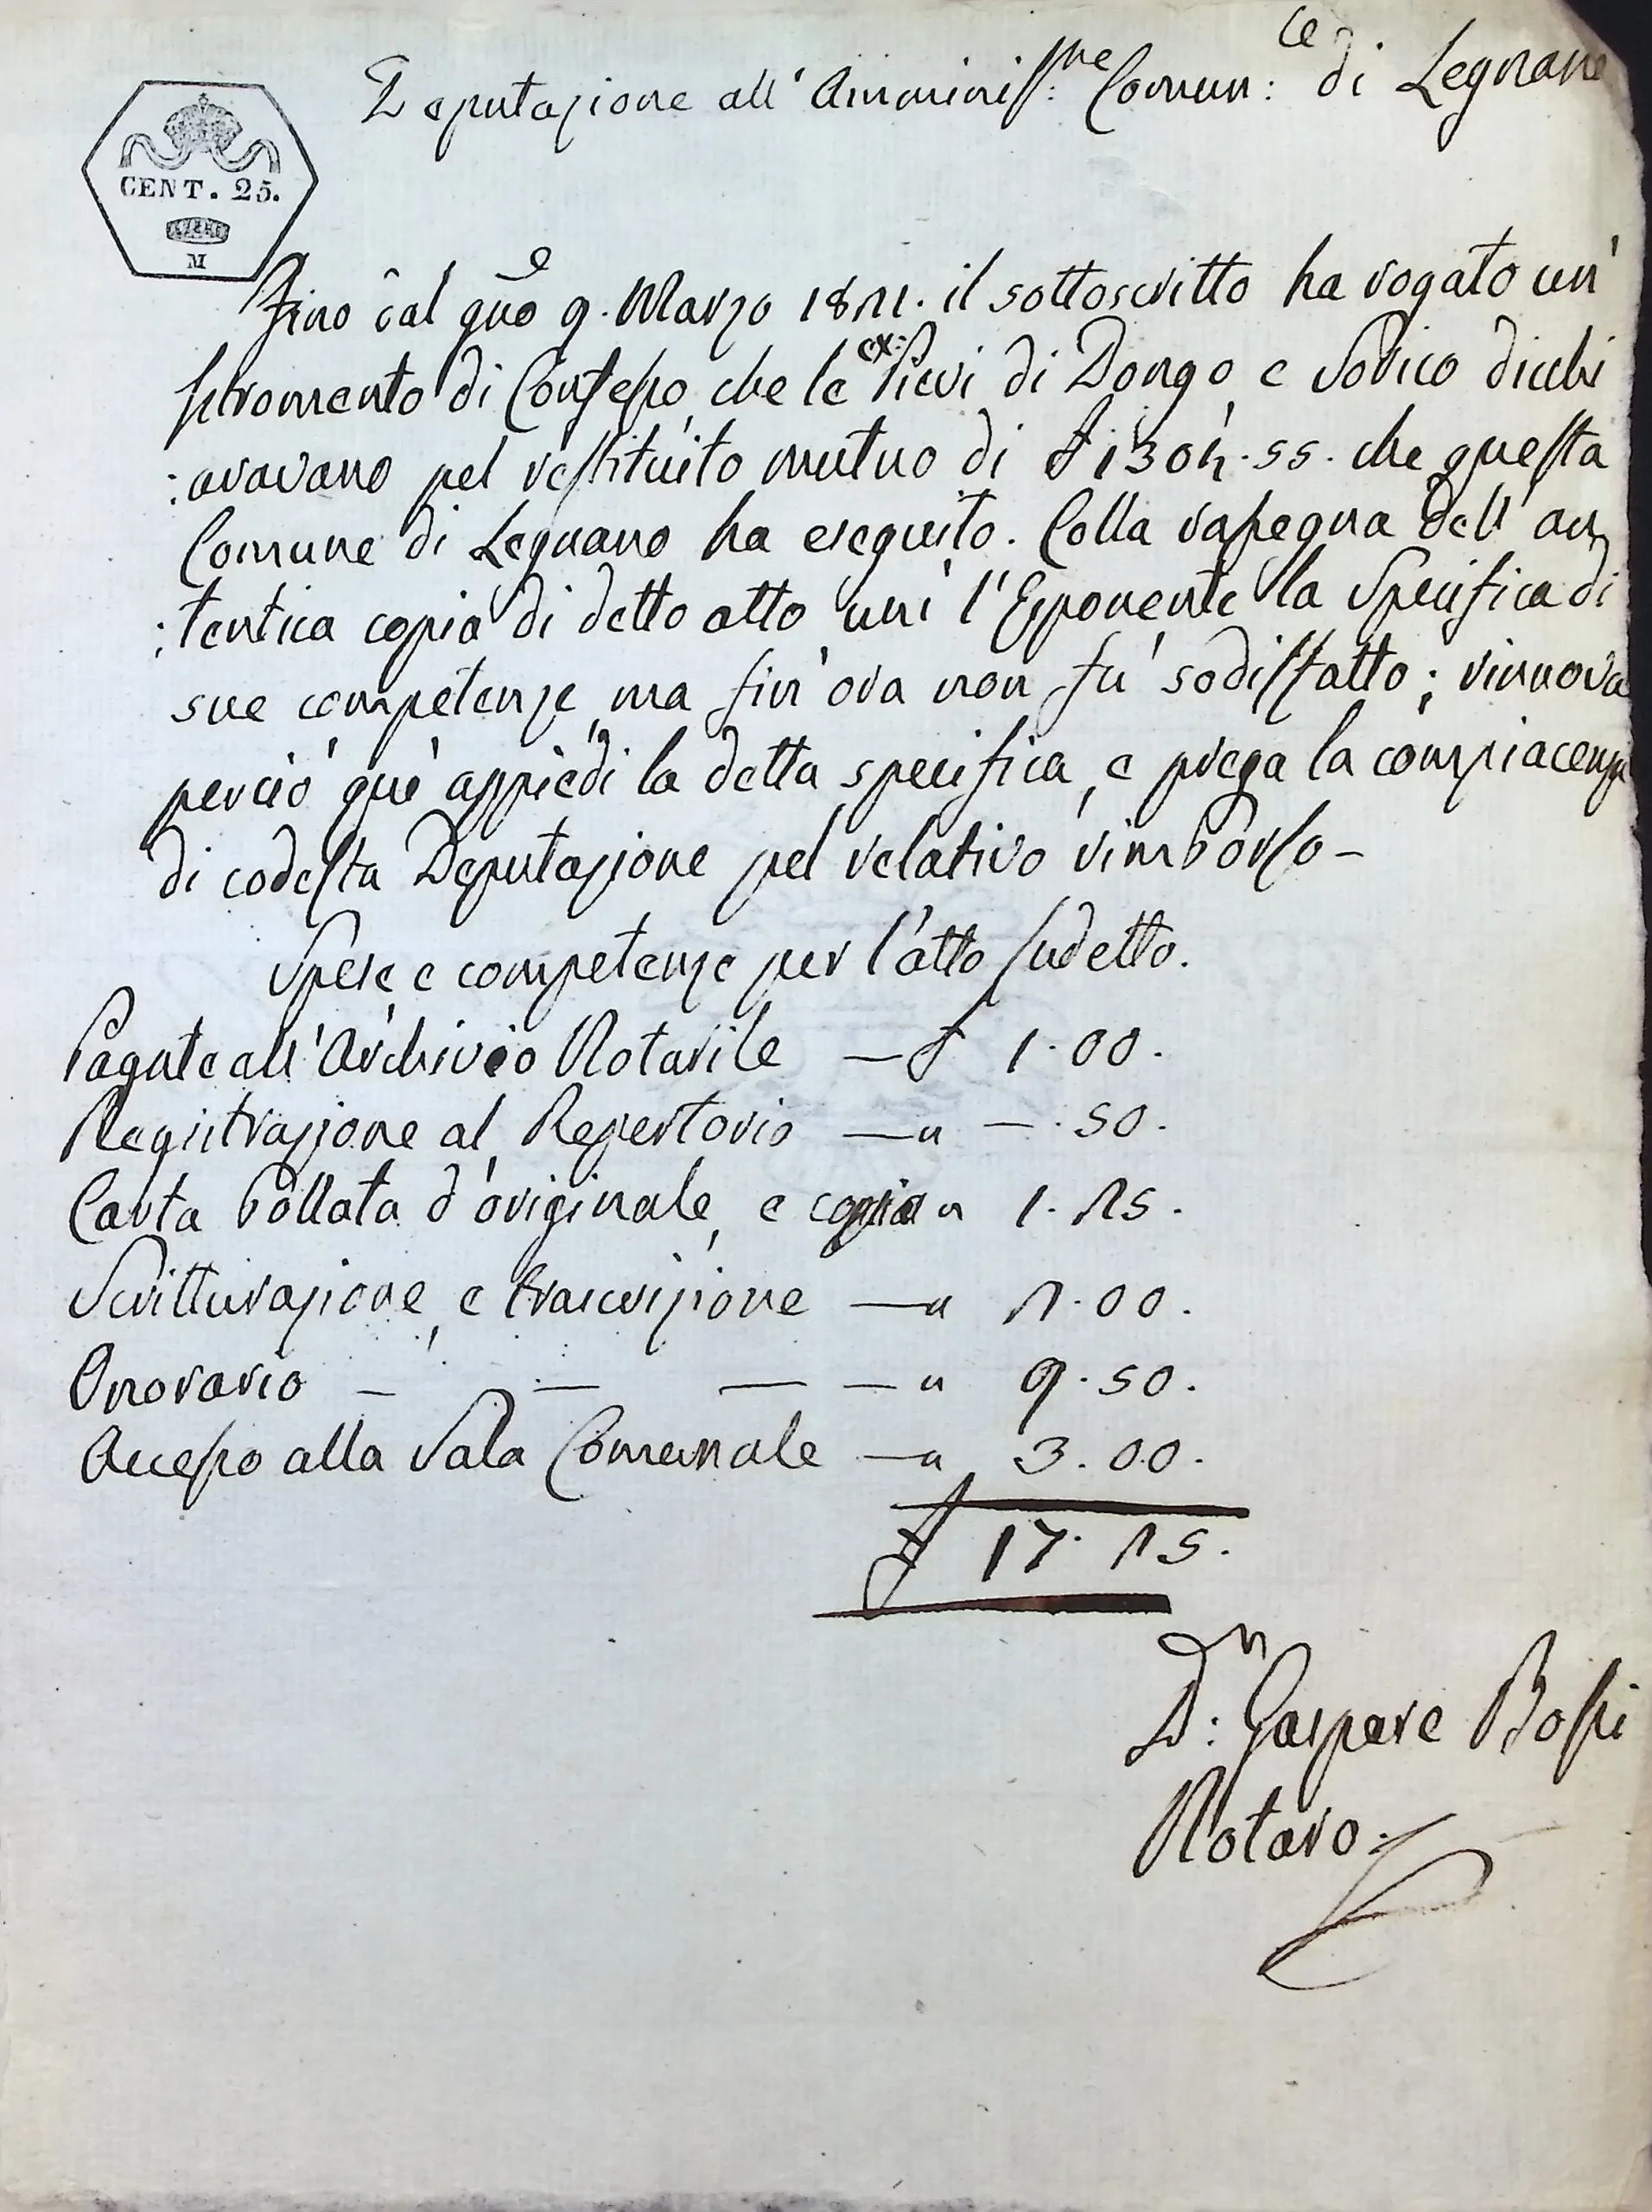 CENT. 25.
M
Deputazione all'Amminis:ne Comun:le di Legnano
Fino dal gño 9. Marzo 1821. il sottoscritto ha rogato un'
Istromento di Confesso, che le ex: Pievi di Dongo, e Sorico dichi
:aravano pel restituito mutuo di £ 1304.55. che questa
Comune di Legnano ha eseguito. Colla rassegna dell'au
:tentica copia di detto atto unì l'Esponente la Specifica di
sue competenze, ma fin'ora non fù sodisfatto; rinnova
perciò quì appiedi la detta specifica, e prega la compiacenza
di codesta Deputazione pel relativo rimborso –
Spese, e competenze per l'atto sudetto.
Pagate all'Archivio Notarile — £ 1.00.
Registrazione al Repertorio — " — .50.
Carta bollata d'originale, e copia " 1.25.
Scritturazione, e trascrizione — " 2.00.
Onorario — — — — " 9.50.
Accesso alla Sala Comunale — " 3.00.
£ 17.25.
D:n Gaspare Bossi
Notaro.